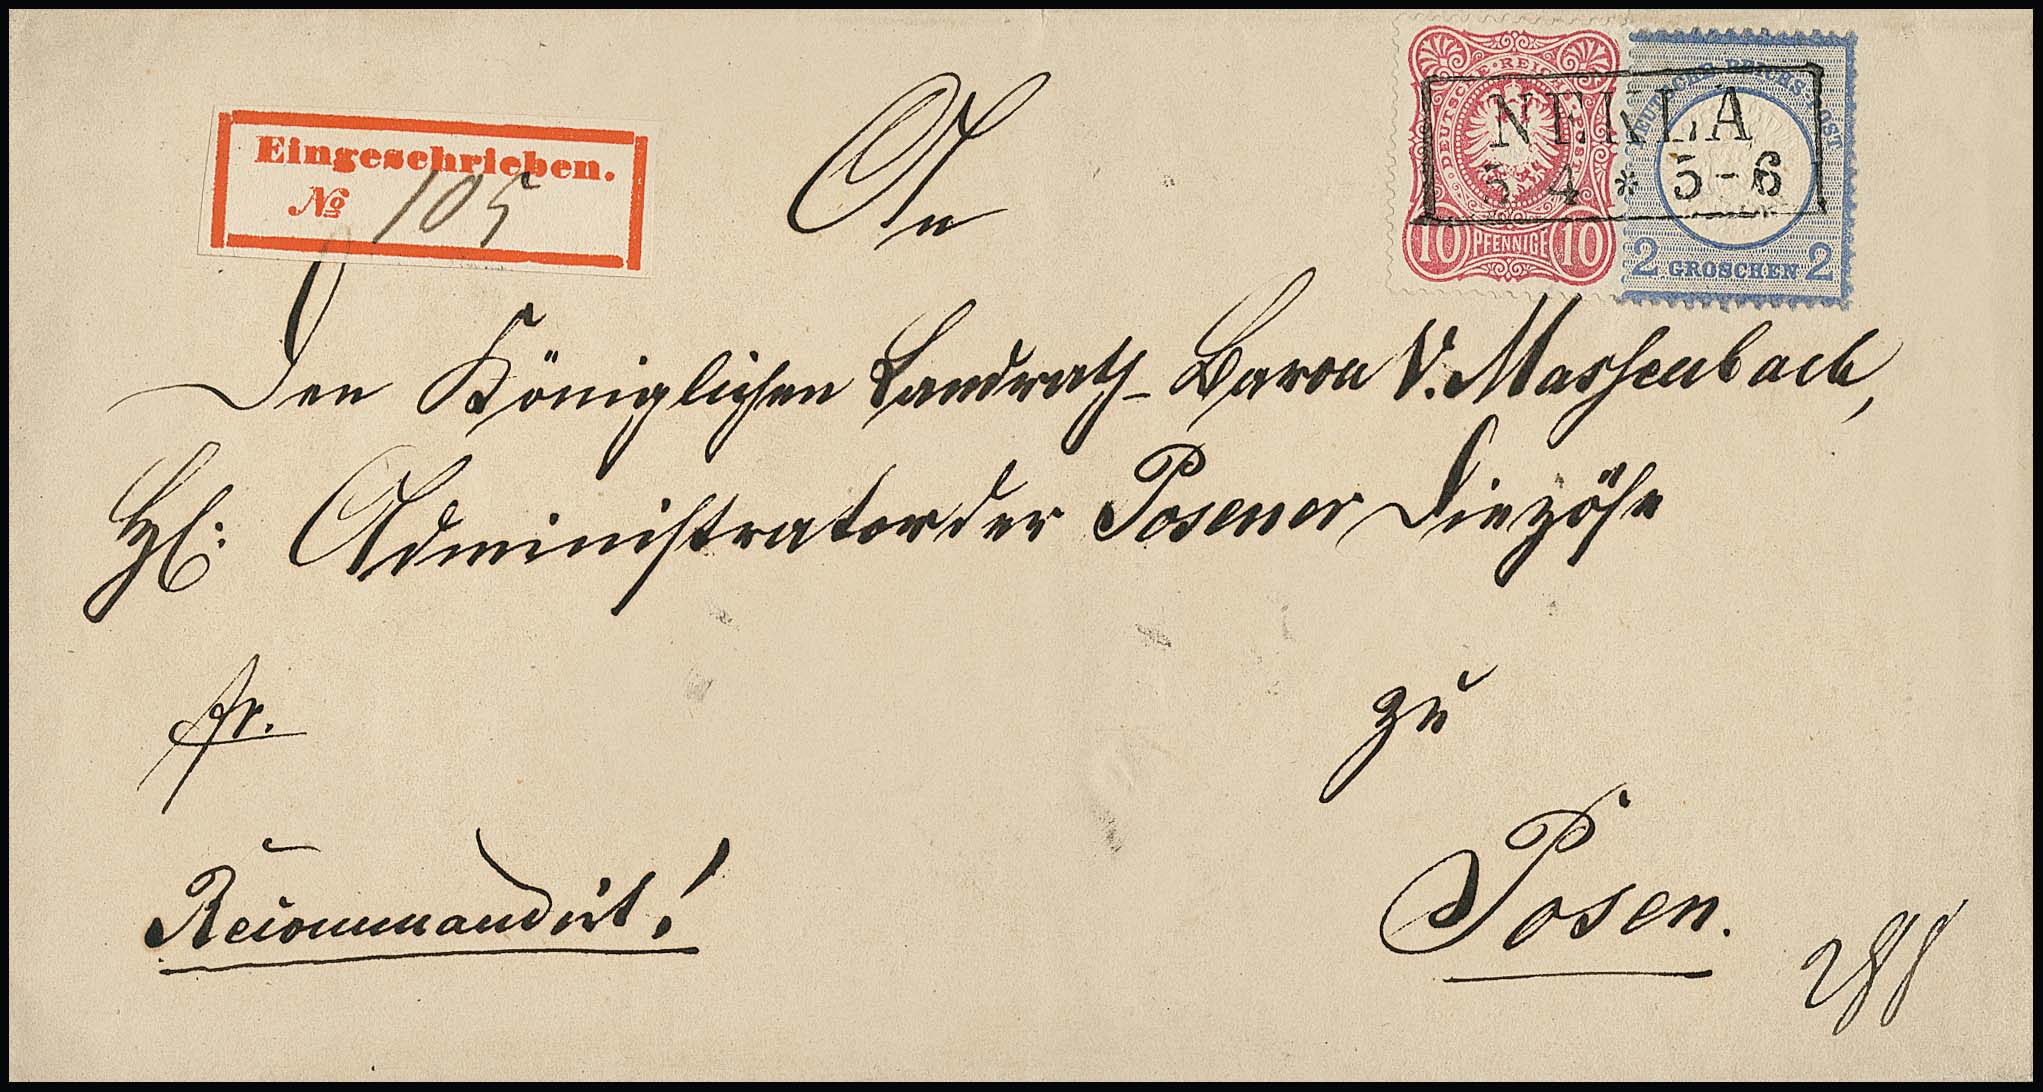 Eingeschrieben.
№ 105
DEUTSCHE · REICHS-POST
10 PFENNIGE 10
DEUTSCHE REICHS-POST
2 GROSCHEN 2
NEKLA
5 4 * 5-6
An
Den Königlichen Landrath Baron v. Massenbach,
Administrator der Posener Diezöse
fr.
zu
Recommandirt!
Posen.